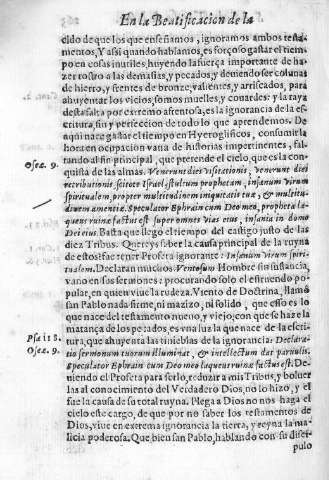 En la Beatificacion de la
cido de que los que enseñamos, ignoramos ambos testa-
mentos, Y assi quando hablamos, es forçoso gastar el tiem-
po en cosas inutiles, huyendo la fuerça importante de ha-
zer rostro a las demasias, y pecados, y deniendo ser colunas
de hierro, y frentes de bronze, valientes, y arriscados, para
ahuyentar los vicios, somos muelles, y couardes: y la rayz
desta falta por extremo afrentosa, es la ignorancia de la es-
critura, sin y perfeccion de todo lo que aprendemos. De
aqui nace gastar el tiempo en Hyeroglificos, consumir la
hora en ocupacion vana de historias impertinentes, fal-
Osee. 9.
tando al fin principal, que pretende el cielo, que es la con-
quista de las almas. Venerunt dies visitationis, venerunt dies
retributionis, scitote Israel, stultum prophetam, insanum virum
spiritualem, propter multitudinem iniquitatis tuæ, & multitu-
dinem amentiæ. Speculator Ephraim cum Deo meo, propheta la-
queus ruinæ factus est super omnes vias eius, insania in domo
Dei eius. Basta que llegò el tiempo del castigo justo de las
diez Tribus. Quereys saber la causa principal de la ruyna
de estos? fue tener Profeta ignorante: Insanum virum spiri-
tualem. Declaran muchos. Ventosum Hombre sin sustancia,
vano en sus sermones: procurando solo el estruendo po-
pular, en quien viue la rudeza. Viento de Doctrina, llamò
san Pablo nada firme, ni mazizo, ni solido, que esso es lo
que nace del testamento nueuo, y viejo; con que se haze la
matança de los pecados, es vna lua la que nace de la escri-
Psa. 118.
tura, que ahuyenta las tinieblas de la ignorancia: Declara-
Osee. 9.
tio sermonum tuorum illuminat, & intellectum dat paruulis.
Speculator Ephrain cum Deo meo laqueus ruinæ factus est. De-
niendo el Profeta para serlo, reduzir a mis Tribus, y boluer
las al conocimiento del Verdadero Dios no lo hizo, y el
fue la causa de su total ruyna. Plega a Dios no nos haga el
cielo este cargo, de que por no saber los testamentos de
Dios, viue en extrema ignorancia la tierra, y reyna la ma-
licia poderosa. Que bien san Pablo, hablando con su disci-
pulo